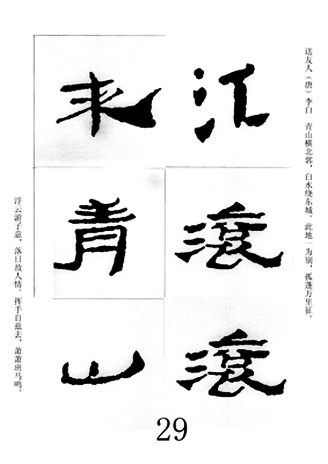 送友人（唐）李白 青山横北郭，白水绕东城，此地一为别，孤蓬万里征。
江滚滚
来青山
浮云游子意，落日故人情，挥手自兹去，萧萧班马鸣。
29